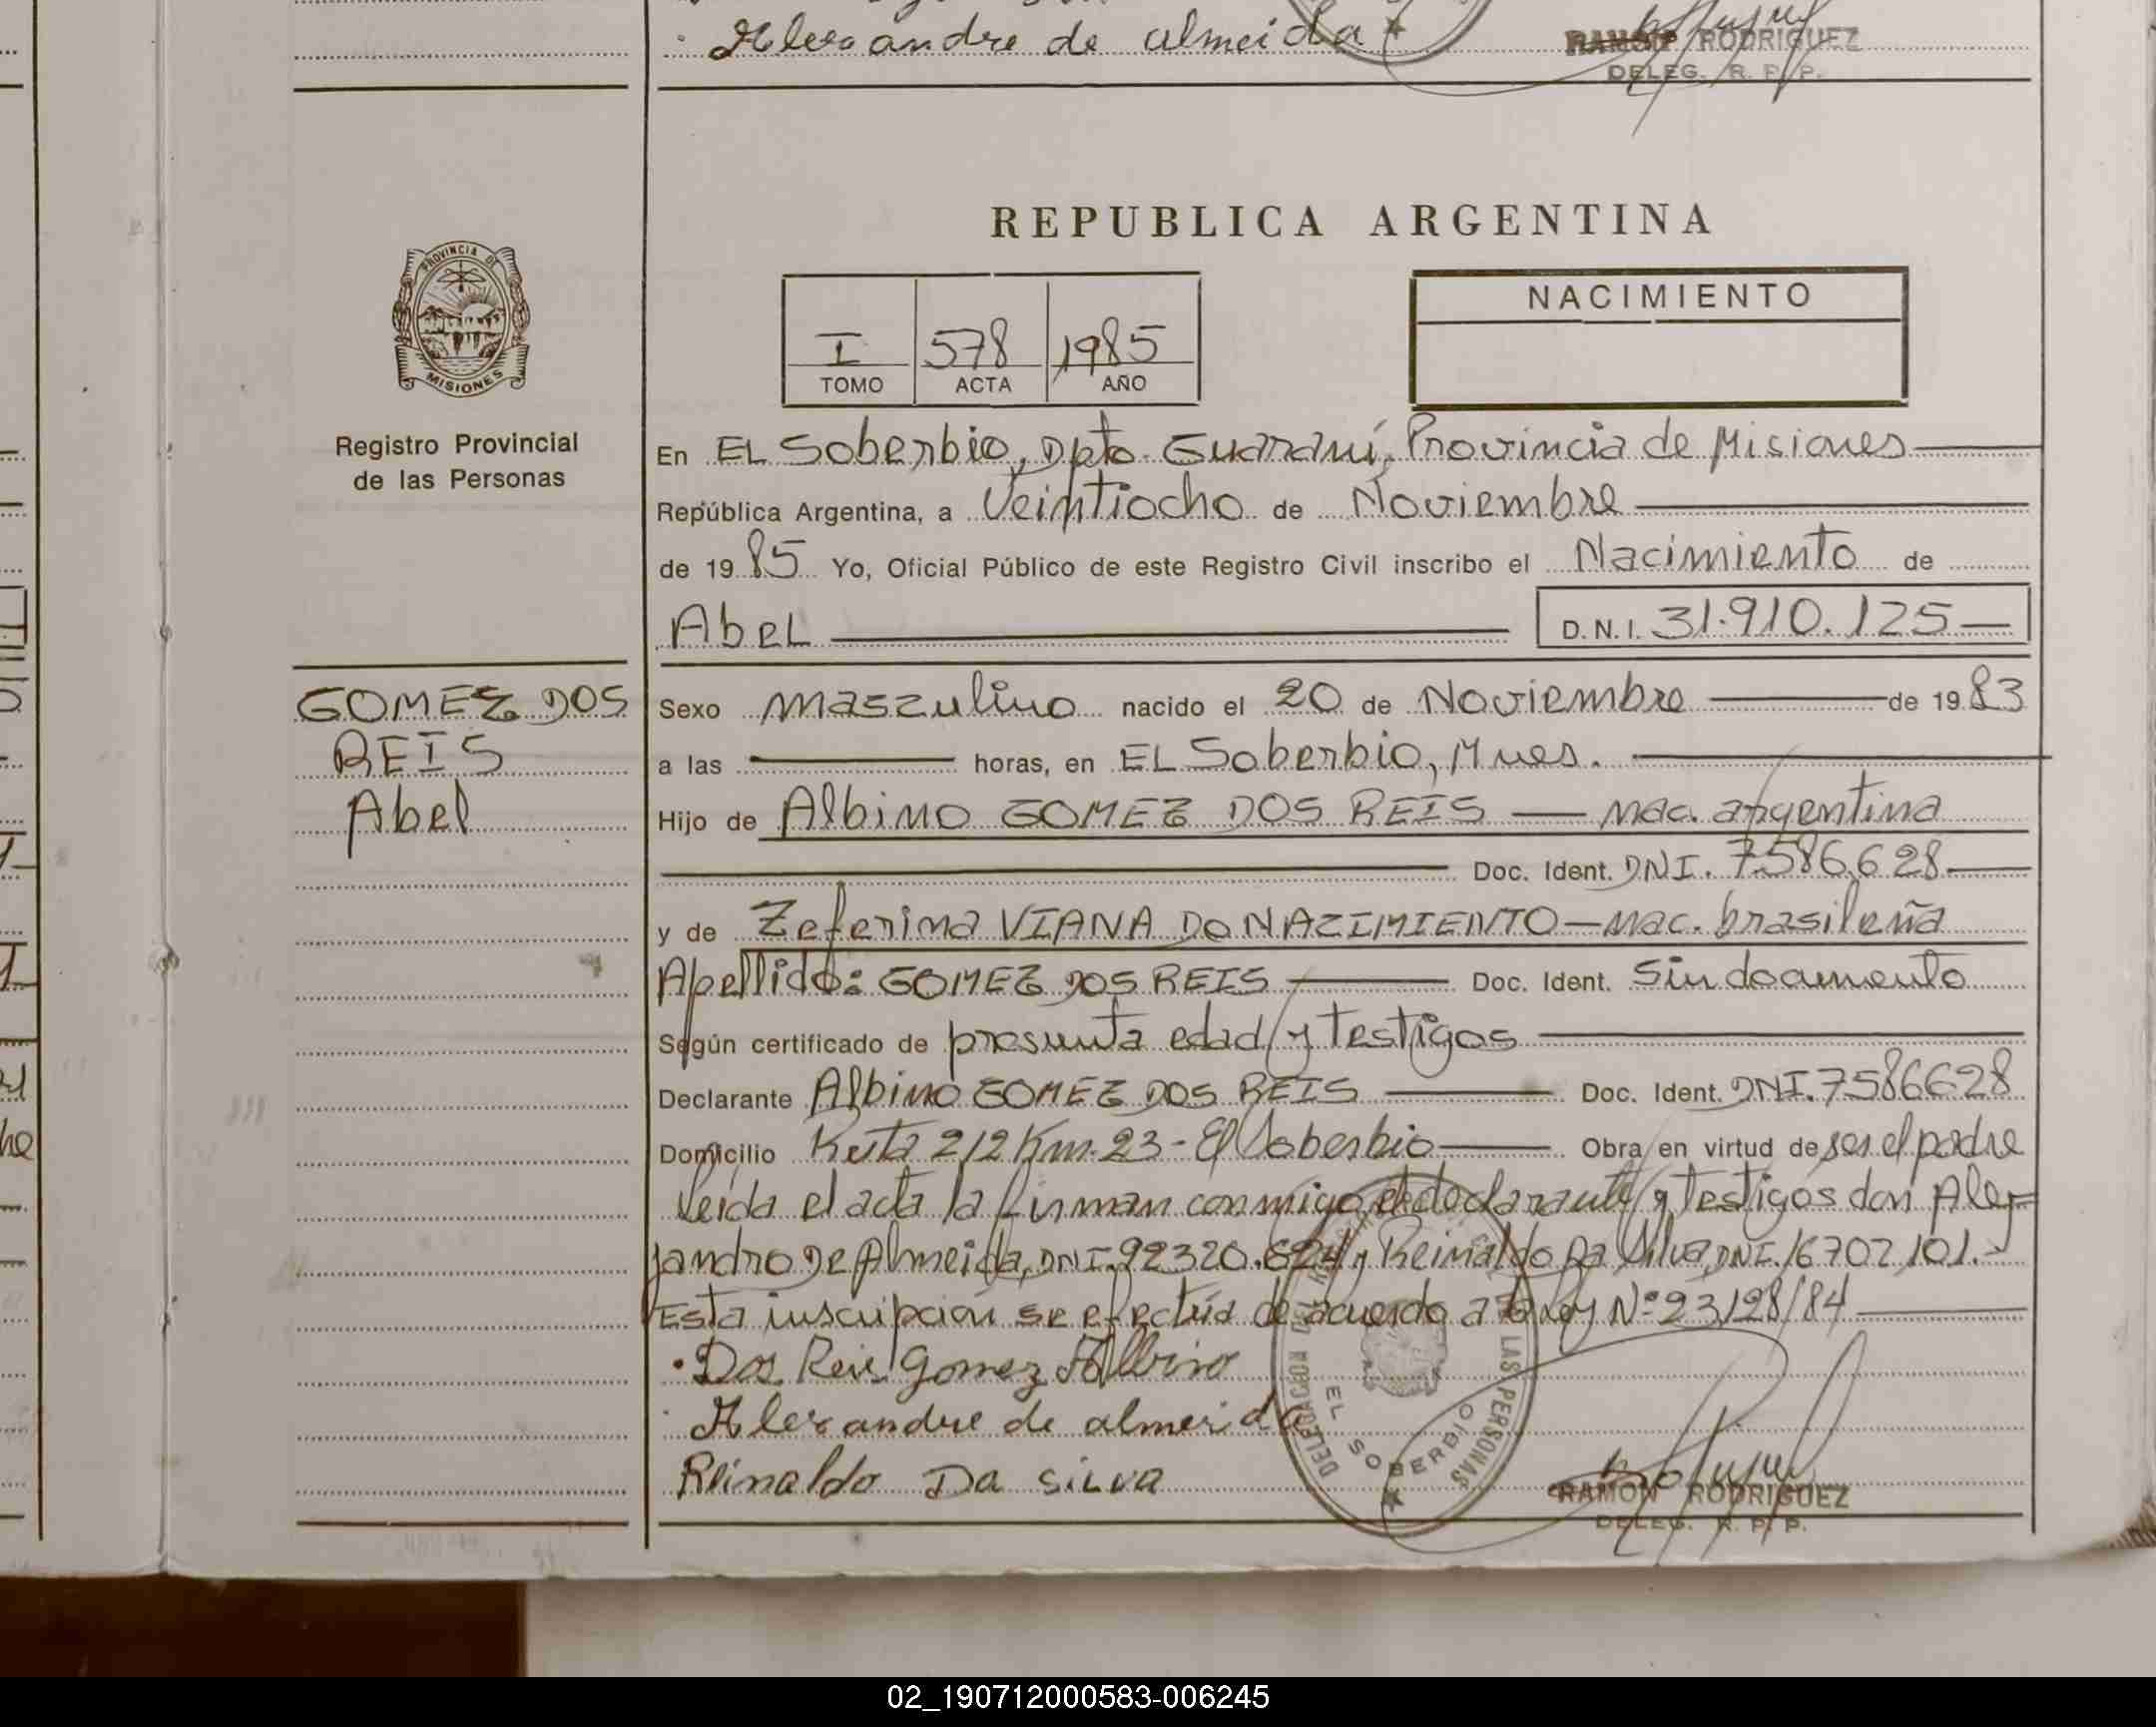 Alexandre de almeida
RAMON RODRIGUEZ
DELEG. R. P. P.
REPUBLICA ARGENTINA
PROVINCIA DE
MISIONES
Registro Provincial
de las Personas
I 578 1985
TOMO ACTA AÑO
NACIMIENTO
En EL Soberbio, Dpto. Guaraní, Provincia de Misiones
República Argentina, a Veintiocho de Noviembre
de 1985 Yo, Oficial Público de este Registro Civil inscribo el Nacimiento de
Abel D.N.I. 31.910.125
GOMEZ DOS
REIS
Abel
Sexo maszulino nacido el 20 de Noviembre de 1983
a las horas, en EL Soberbio, Mnes.
Hijo de Albino GOMEZ DOS REIS nac. argentina
Doc. Ident. DNI. 7.586.628
y de Zeferina VIANA DO NAZIMIENTO - nac. brasileña
Apellido: GOMEZ DOS REIS Doc. Ident. Sin documento
Según certificado de presunta edad y testigos
Declarante Albino GOMEZ DOS REIS Doc. Ident. DNI. 7586628
Domicilio Ruta 212 Km. 23 - El Soberbio Obra en virtud de ser el padre
Leída el acta la firman conmigo, el declarante y testigos don Ale-
jandro De Almeida, DNI. 92320.624 y Reinaldo Da Silva, DNI. 16702101.-
Esta inscripción se efectúa de acuerdo a la Ley Nº 23128/84
Dos Reis Gomez Albino
Alexandre de almeida
Reinaldo Da Silva
LAS PERSONAS
EL SOBERBIO
RAMON RODRIGUEZ
DELEG. R. P. P.
02_190712000583-006245